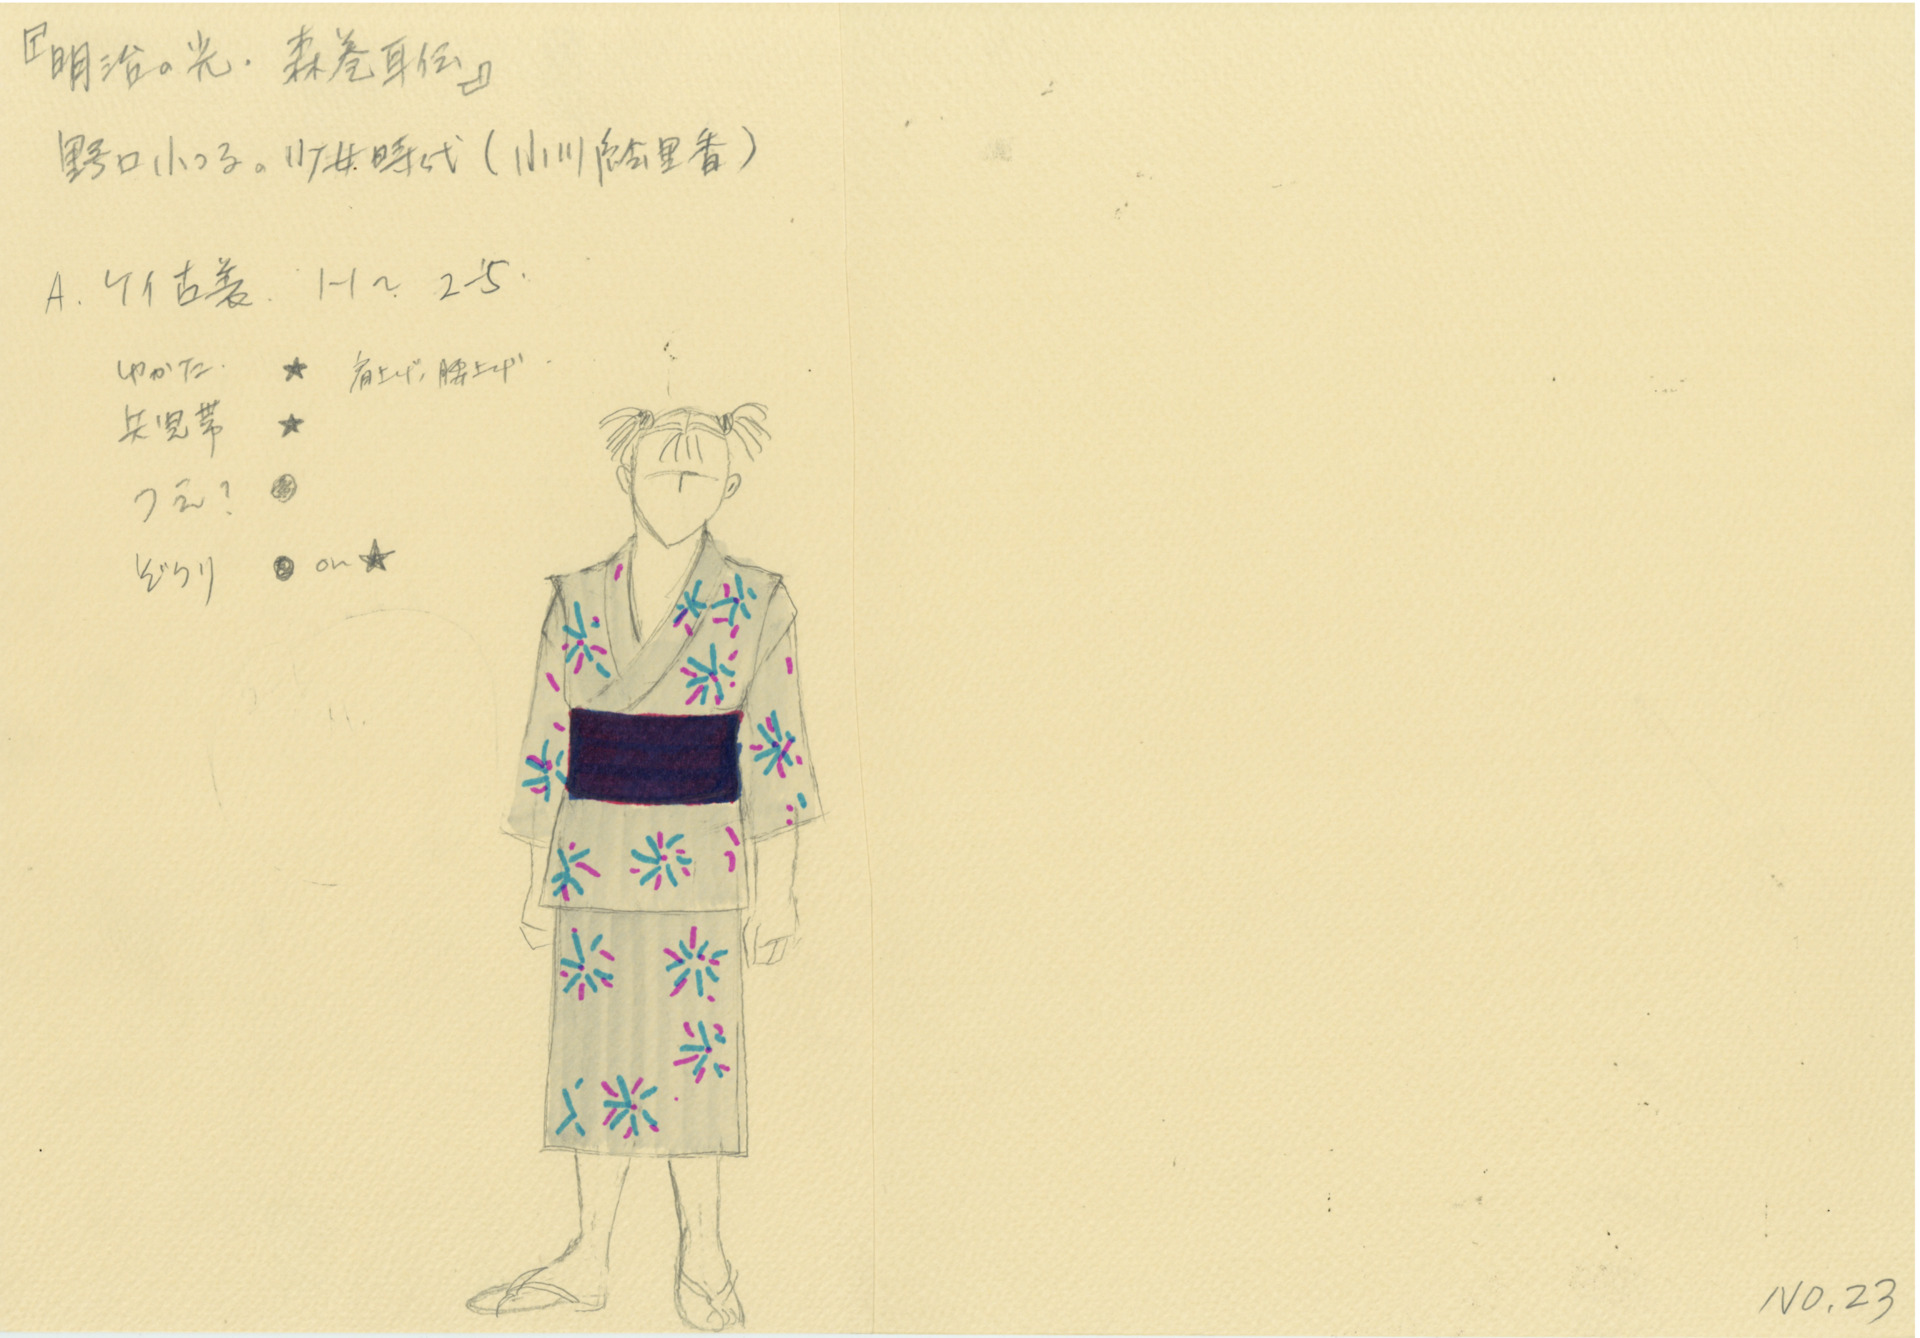 『明治の光・森巻耳伝』
野口小つる。少女時代(小川絵里香)
A. ケイ古着. 1-1~ 2-5.
ゆかた. ★ 肩上げ, 腰上げ
兵児帯 ★
つえ? ●
ぞうり ● or ★
NO.23